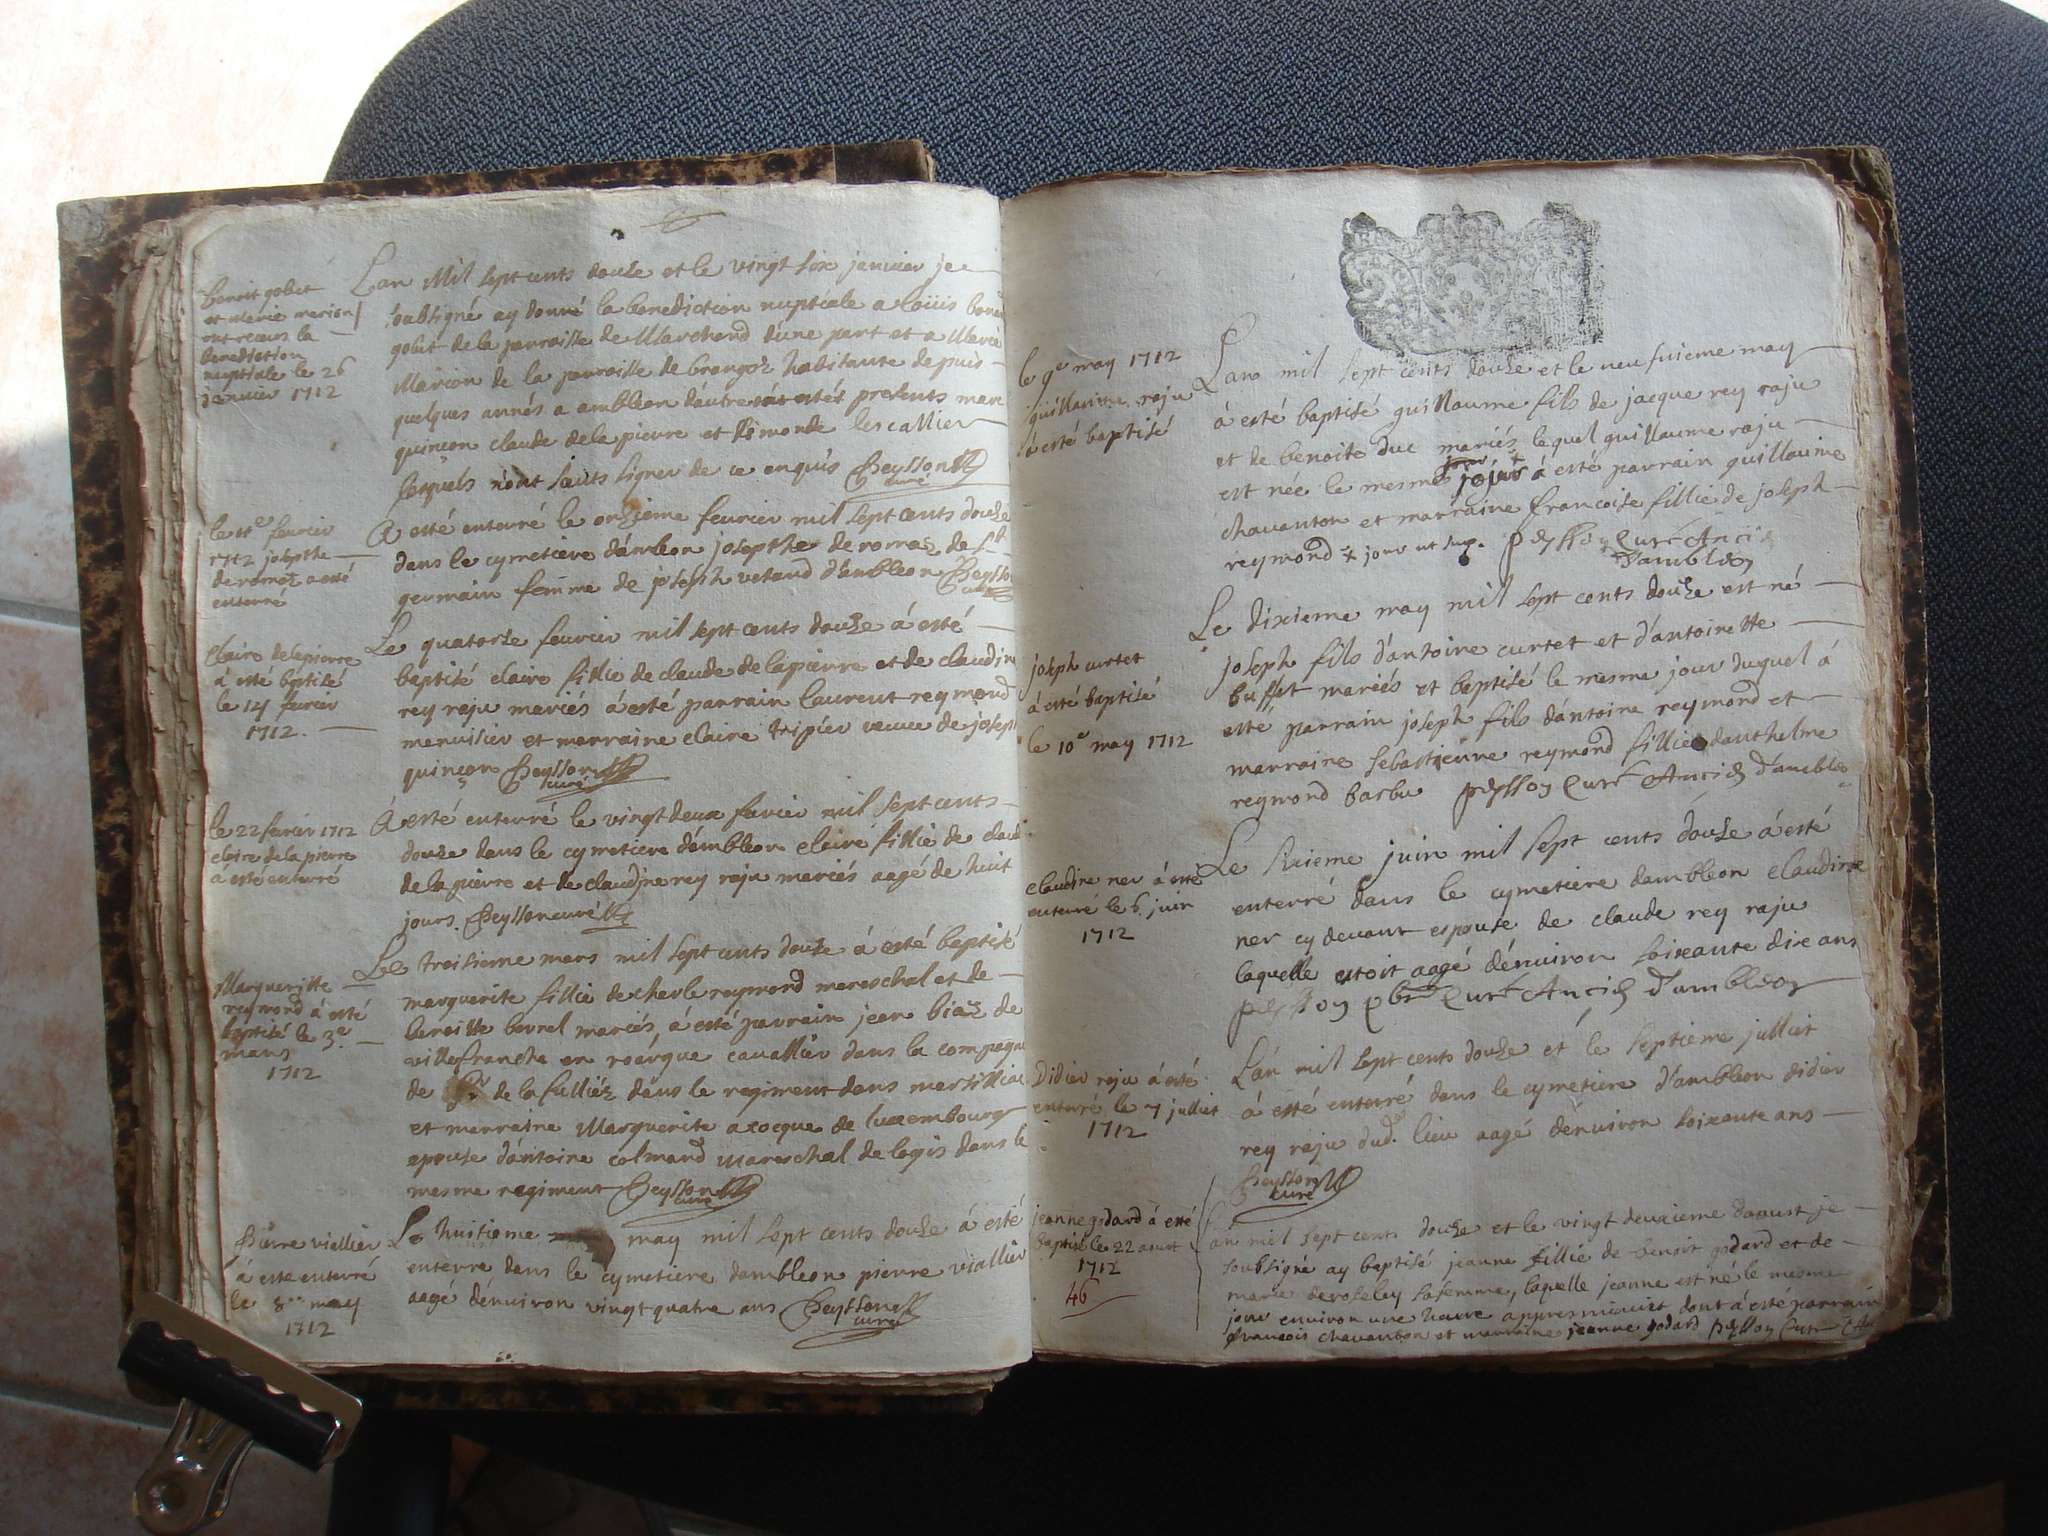 benoit gobet
et Marie marion
ont receus la
benediction
nuptiale le 26
Janvier 1712
Lan Mil sept cents douze et le vingt six janvier je
soubsigné ay donné la benediction nuptiale a loüis benoit
gobet de la parroisse de Marchend d'une part et a Marie
Marion de la parroisse de brangoz habitante depuis
quelques annés a ambleon d'autre estés presents marc
quinçon claude delapierre et lescallier
lesquels n'ont sceüts signer de ce enquis peysson
curé
le 11e fevrier
1712 josepthe
deromaz a esté
enterré
A esté enterré le onzieme fevrier mil sept cents douze
dans le cymetiere d'ambleon josepthe de romaz de st
germain femme de joseph vetaud d'ambleon peysson
curé
claire delapierre
á esté baptisé
le 14 fevrier
1712.
Le quatorze fevrier mil sept cents douze á esté
baptisé claire fillie de claude delapierre et de claudine
rey raju mariés á esté parrain laurent reymond
menuisier et marraine claire tripier veuve de joseph
quinçon peysson
curé
le 22 fevrier 1712
claire de la pierre
a esté enterré
A esté enterré le vingt deux fevrier mil sept cents
douze dans le cymetiere d'ambleon claire fillie de claude
de la pierre et de claudine rey raju mariés aagé de huit
jours. peysson curé
Margueritte
reymond á esté
baptisé le 3e
mars
1712
Le troisieme mars mil sept cents douze á esté baptisé
marguerite fillie de charle reymond mareschal et de
benoitte borrel mariés, á esté parrain jean biaz de
villefranche en roërgue cavallier dans la compagnie
de de la fulliéz dans le regiment dans marsilliac
et marraine Marguerite acocque de luxembourg
epouse d'antoine colmard mareschal de logis dans le
mesme regiment peysson
curé
Pierre viallier
á esté enterré
le 8e may
1712
Le huitieme may mil sept cents douze á esté
enterré dans le cymetiere dambleon pierre viallier
aagé d'environ vingt quatre ans peysson
curé
le 9e may 1712
guillaume raju
á esté baptisé
Lan mil sept cents douze et le neufvieme may
á esté baptisé guillaume fils de jacque rey raju
et de benoite duc mariés lequel guillaume raju
est née le mesme jour á esté parrain guillaume
chavanton et marraine francoise fillie de joseph
reymond x jour ut sup. peysson Curé Anció
d'ambleon
joseph curtet
á esté baptisé
le 10e may 1712
Le dixieme may mil sept cents douze est né
joseph fils d'antoine curtet et d'antoinette
buffet mariés et baptisé le mesme jour duquel á
esté parrain joseph fils d'antoine reymond et
marraine sebastienne reymond fillie danthelme
reymond barbu peysson Curé d'ambleon
claudine ner á esté
enterré le 6. juin
1712
Le sixieme juin mil sept cents douze á esté
enterré dans le cymetiere dambleon claudine
ner cy devant espouse de claude rey raju
laquelle estoit aagé d'environ soixante dix ans
peysson pbre Curé d'ambleon
Didier raju á esté
enterré le 7 julliet
1712
L'an mil sept cents douze et le septieme julliet
á esté enterré dans le cymetiere d'ambleon didier
rey raju dud. lieu aagé d'environ soixante ans
peysson
curé
jeanne godard á esté
baptisé le 22 aoust
1712
46
L'an mil sept cents douze et le vingt deuxieme daoust je
soubsigné ay baptisé jeanne fillie de benoit godard et de
marie deroseley sa femme, laquelle jeanne est né le mesme
jour environ une heure apprès minuit dont á esté parrain
francois chavanton et marraine jeanne godard peysson Curé